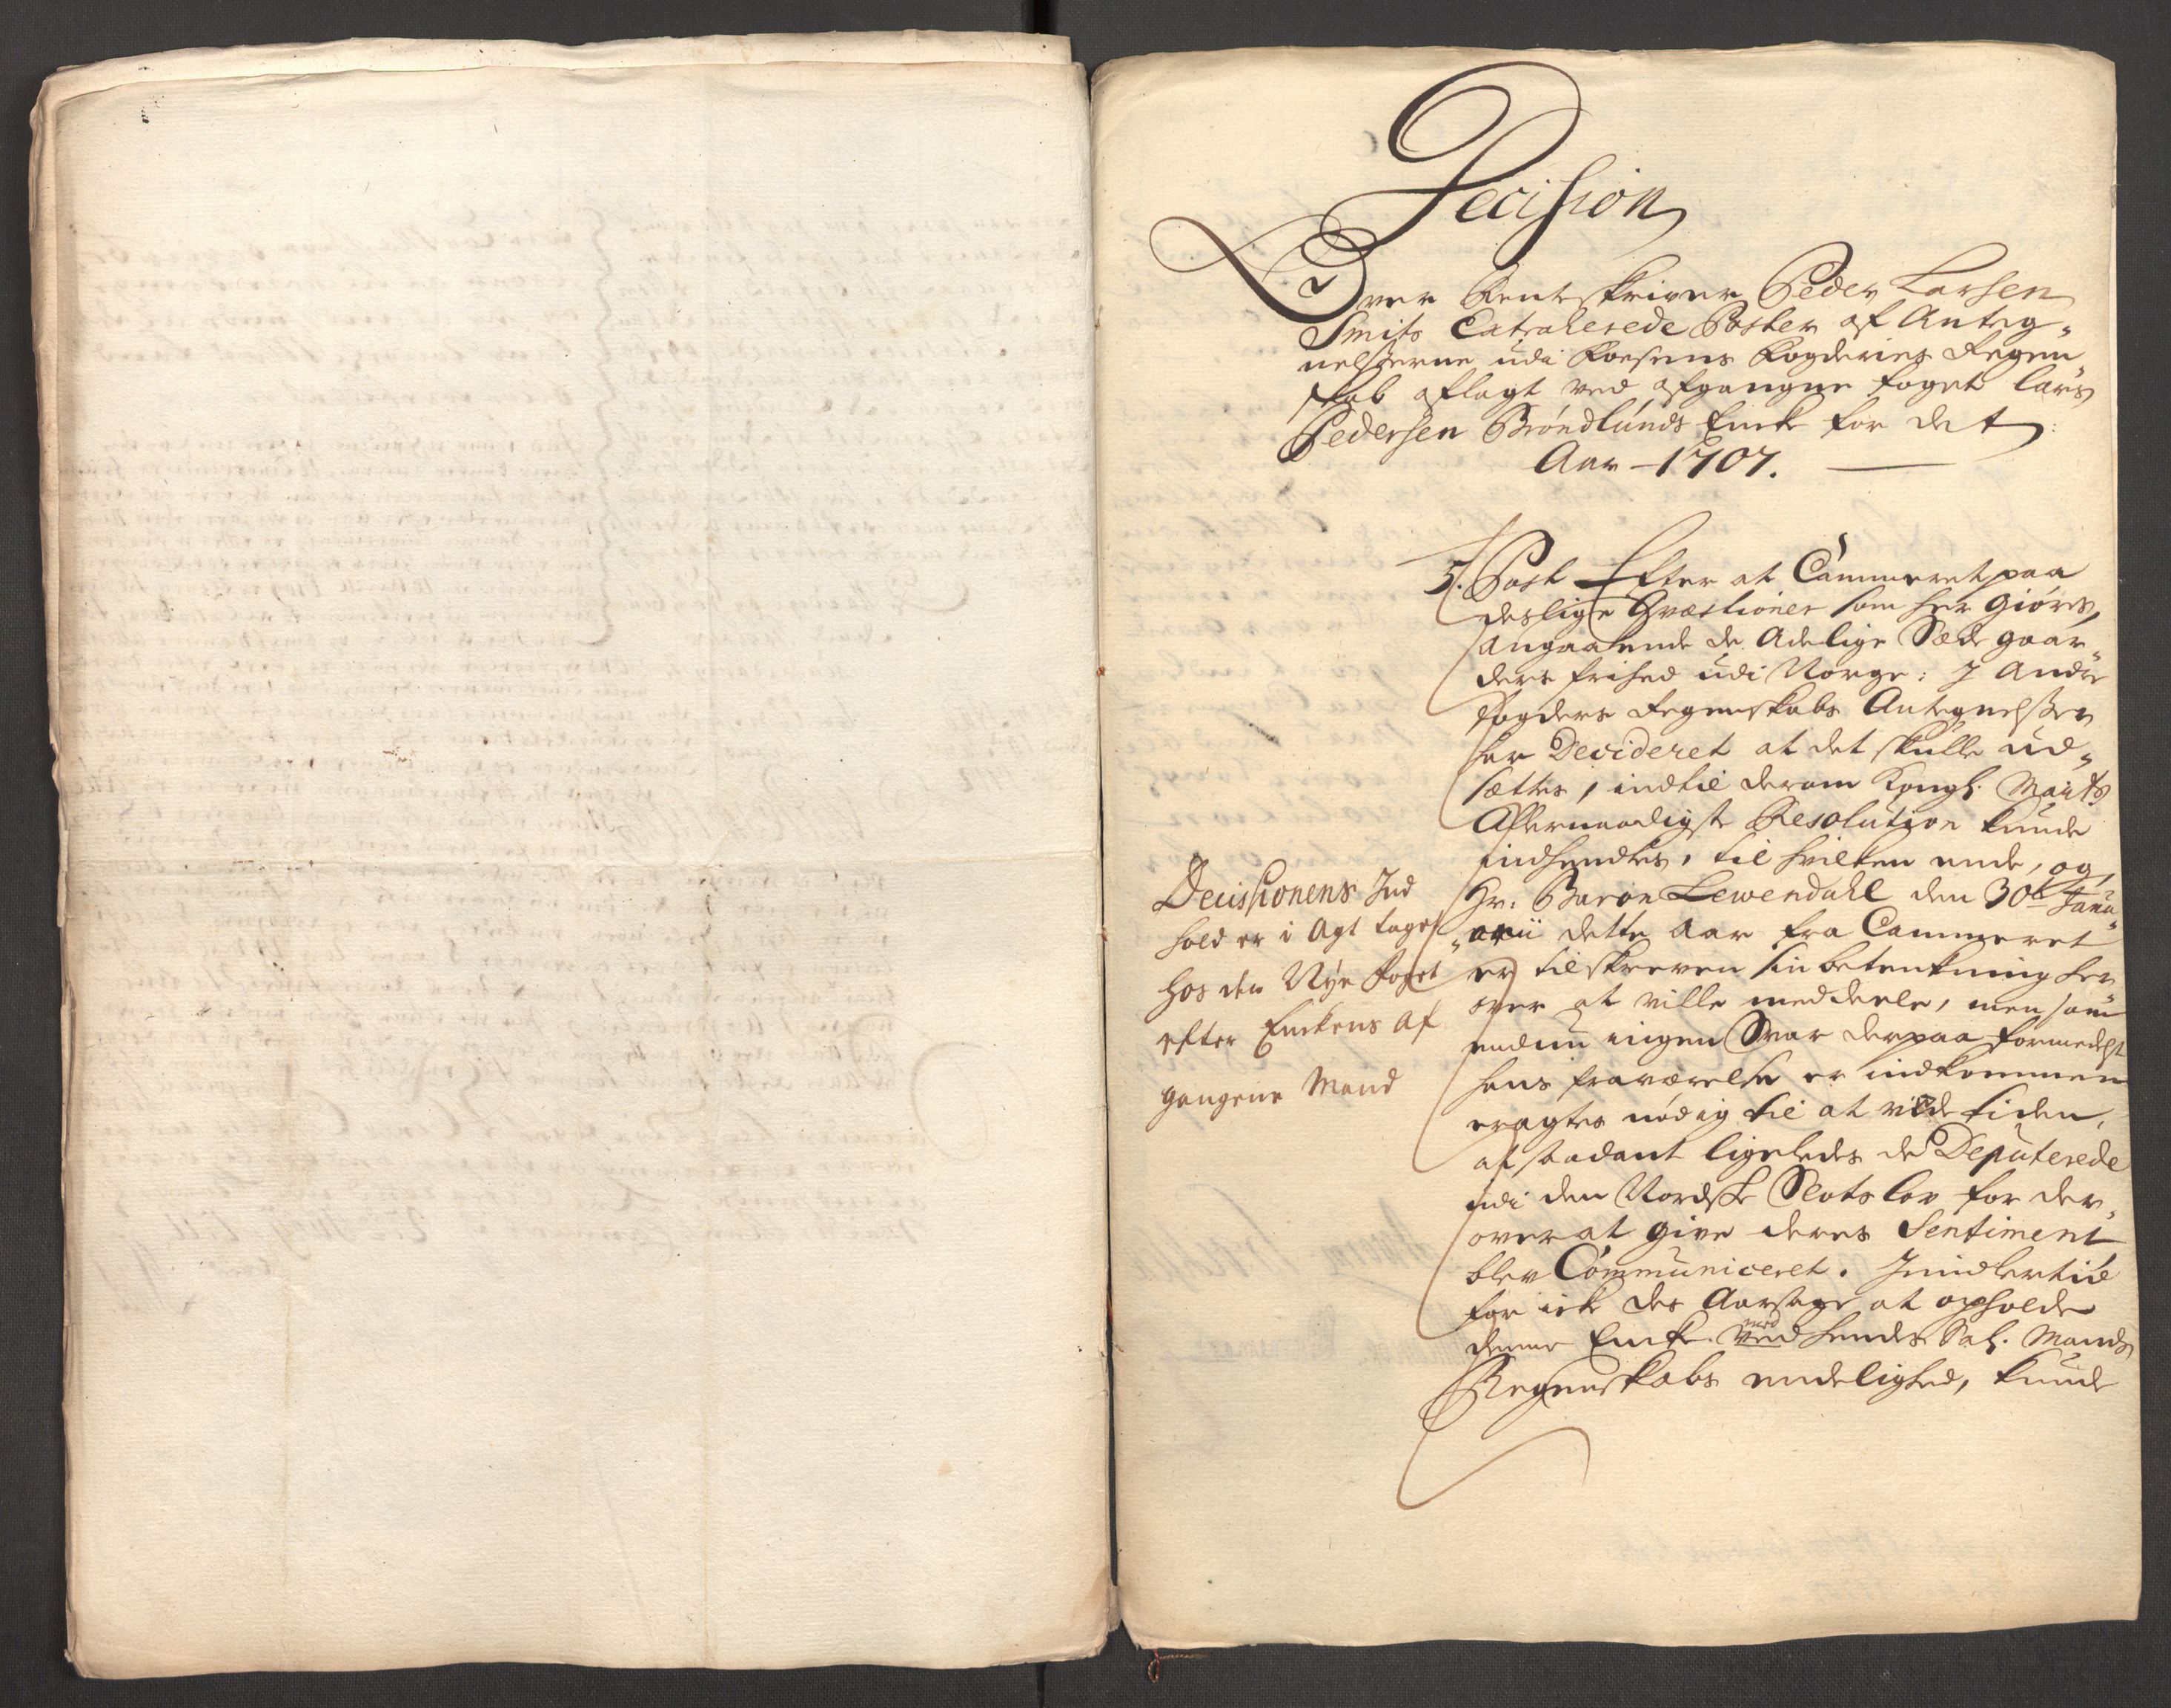 Decision
Over Rentskriver Peder Larsen
Smits Extraherede Poster af Anteg-
nelsserne udi Fosens Fogderies Regen-
skab aflagt ved afgangne foget Lars
Pedersen Brøndlunds Encke for det
Aar 1707.
5. Post Efter at Cammeret paa
deslige Qvæstioner som her giøres,
angaaende de Adelige Sæde gaar-
ders frihed udi Norge: J Andre
fogders Regenskabs Antegnelsser
har Decideret at det skulle ud-
sættes, indtil derom Kongl. Maits
Allernaadigste Resolution kunde
indhendtes, til hvilken ende, og
Hr. Baron Lewendahl den 30te Janu-
arii dette Aar fra Cammeret
er tilskreven sin betenkning her
over at ville meddeele, men som
endnu ingen Svar derpaa formedelst
hans fraværelse er indkommen
eragtes nødig til at vide tiden,
at saadant ligeledes de Deputerede
udi den Nordske Slots lov for der-
over at give deres Sentiment
blev Communiceret. Jmidlertid
for icke des Aarsage at opholde
denne Encke med
ved hendes Sal. Mands
Regenskabs endelighed, kunde
Decisionens Ind
hold er i Agt taget
hos den Nye foget
efter Enckens af
gangene Mand